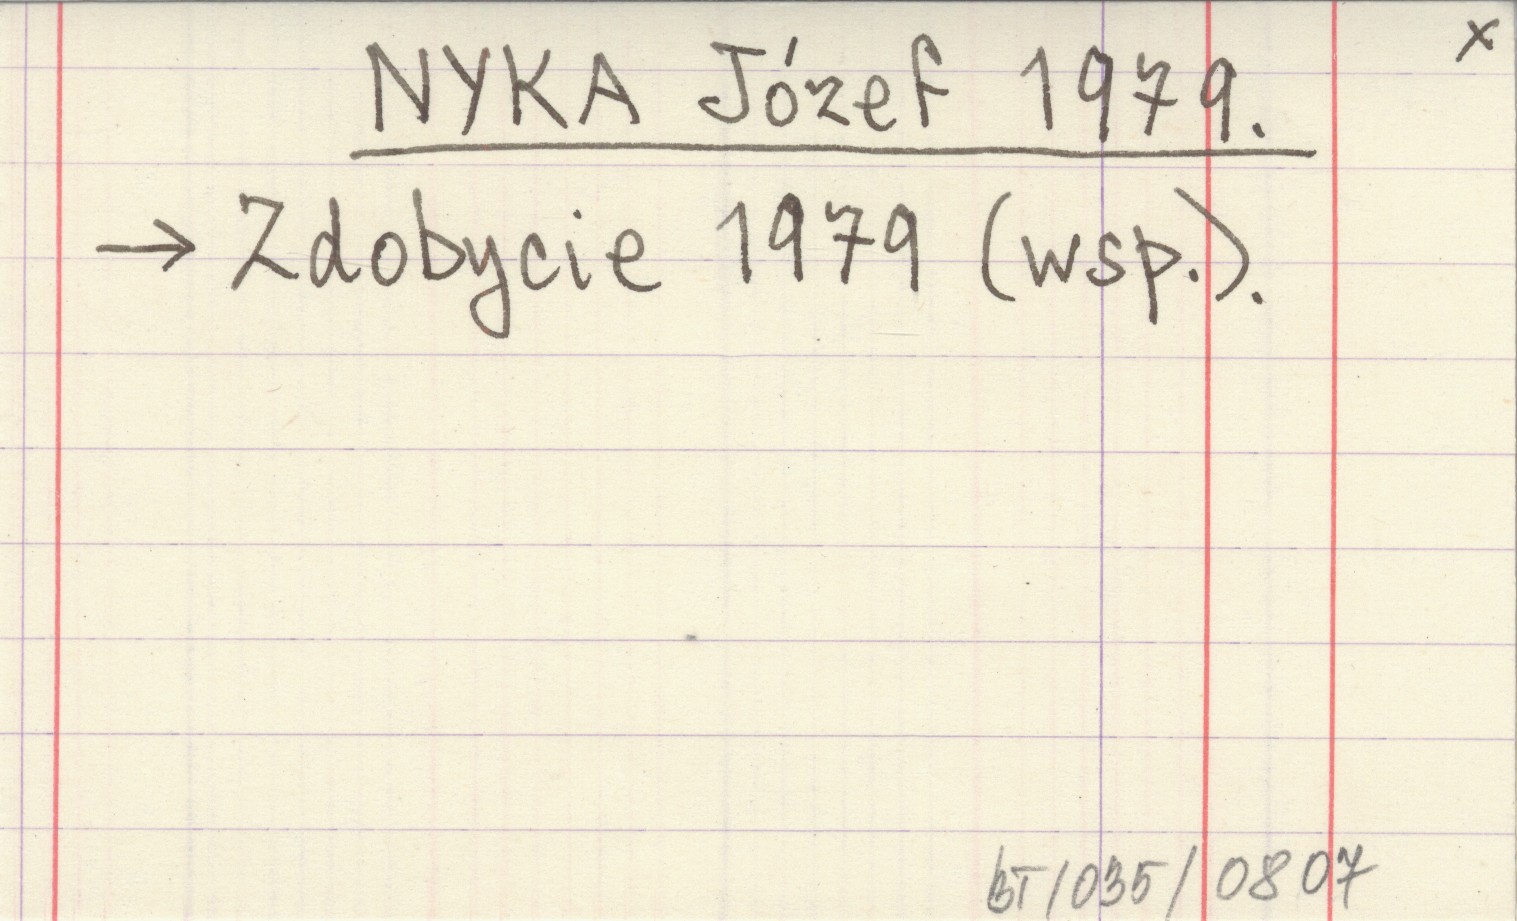 x
NYKA Józef 1979.
→ Zdobycie 1979 (wsp.).
BT/035/0807